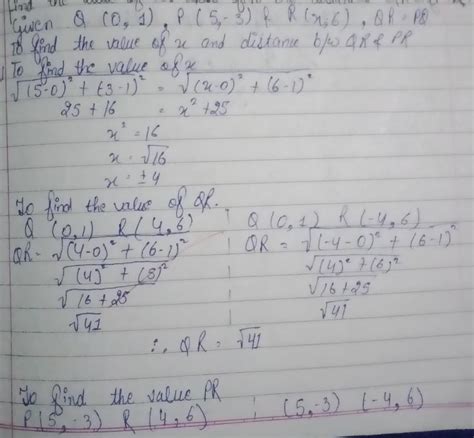 find the value of
Given Q (0,1), P(5,-3) & R(x,6), QR = PQ
To find the value of x and distance b/w QR & PR
To find the value of x
√(5-0)² + (-3-1)² = √(x-0)² + (6-1)²
25 + 16 = x² + 25
x² = 16
x = √16
x = ±4
To find the value of QR.
Q (0,1) R(4,6) Q (0,1) R(-4,6)
QR = √(4-0)² + (6-1)² QR = √(-4-0)² + (6-1)²
√(4)² + (5)² √(4)² + (6)²
√16 + 25 √16 + 25
√41 √41
∴ QR = √41
To find the value PR
P(5,-3) R(4,6) (5,-3) (-4,6)